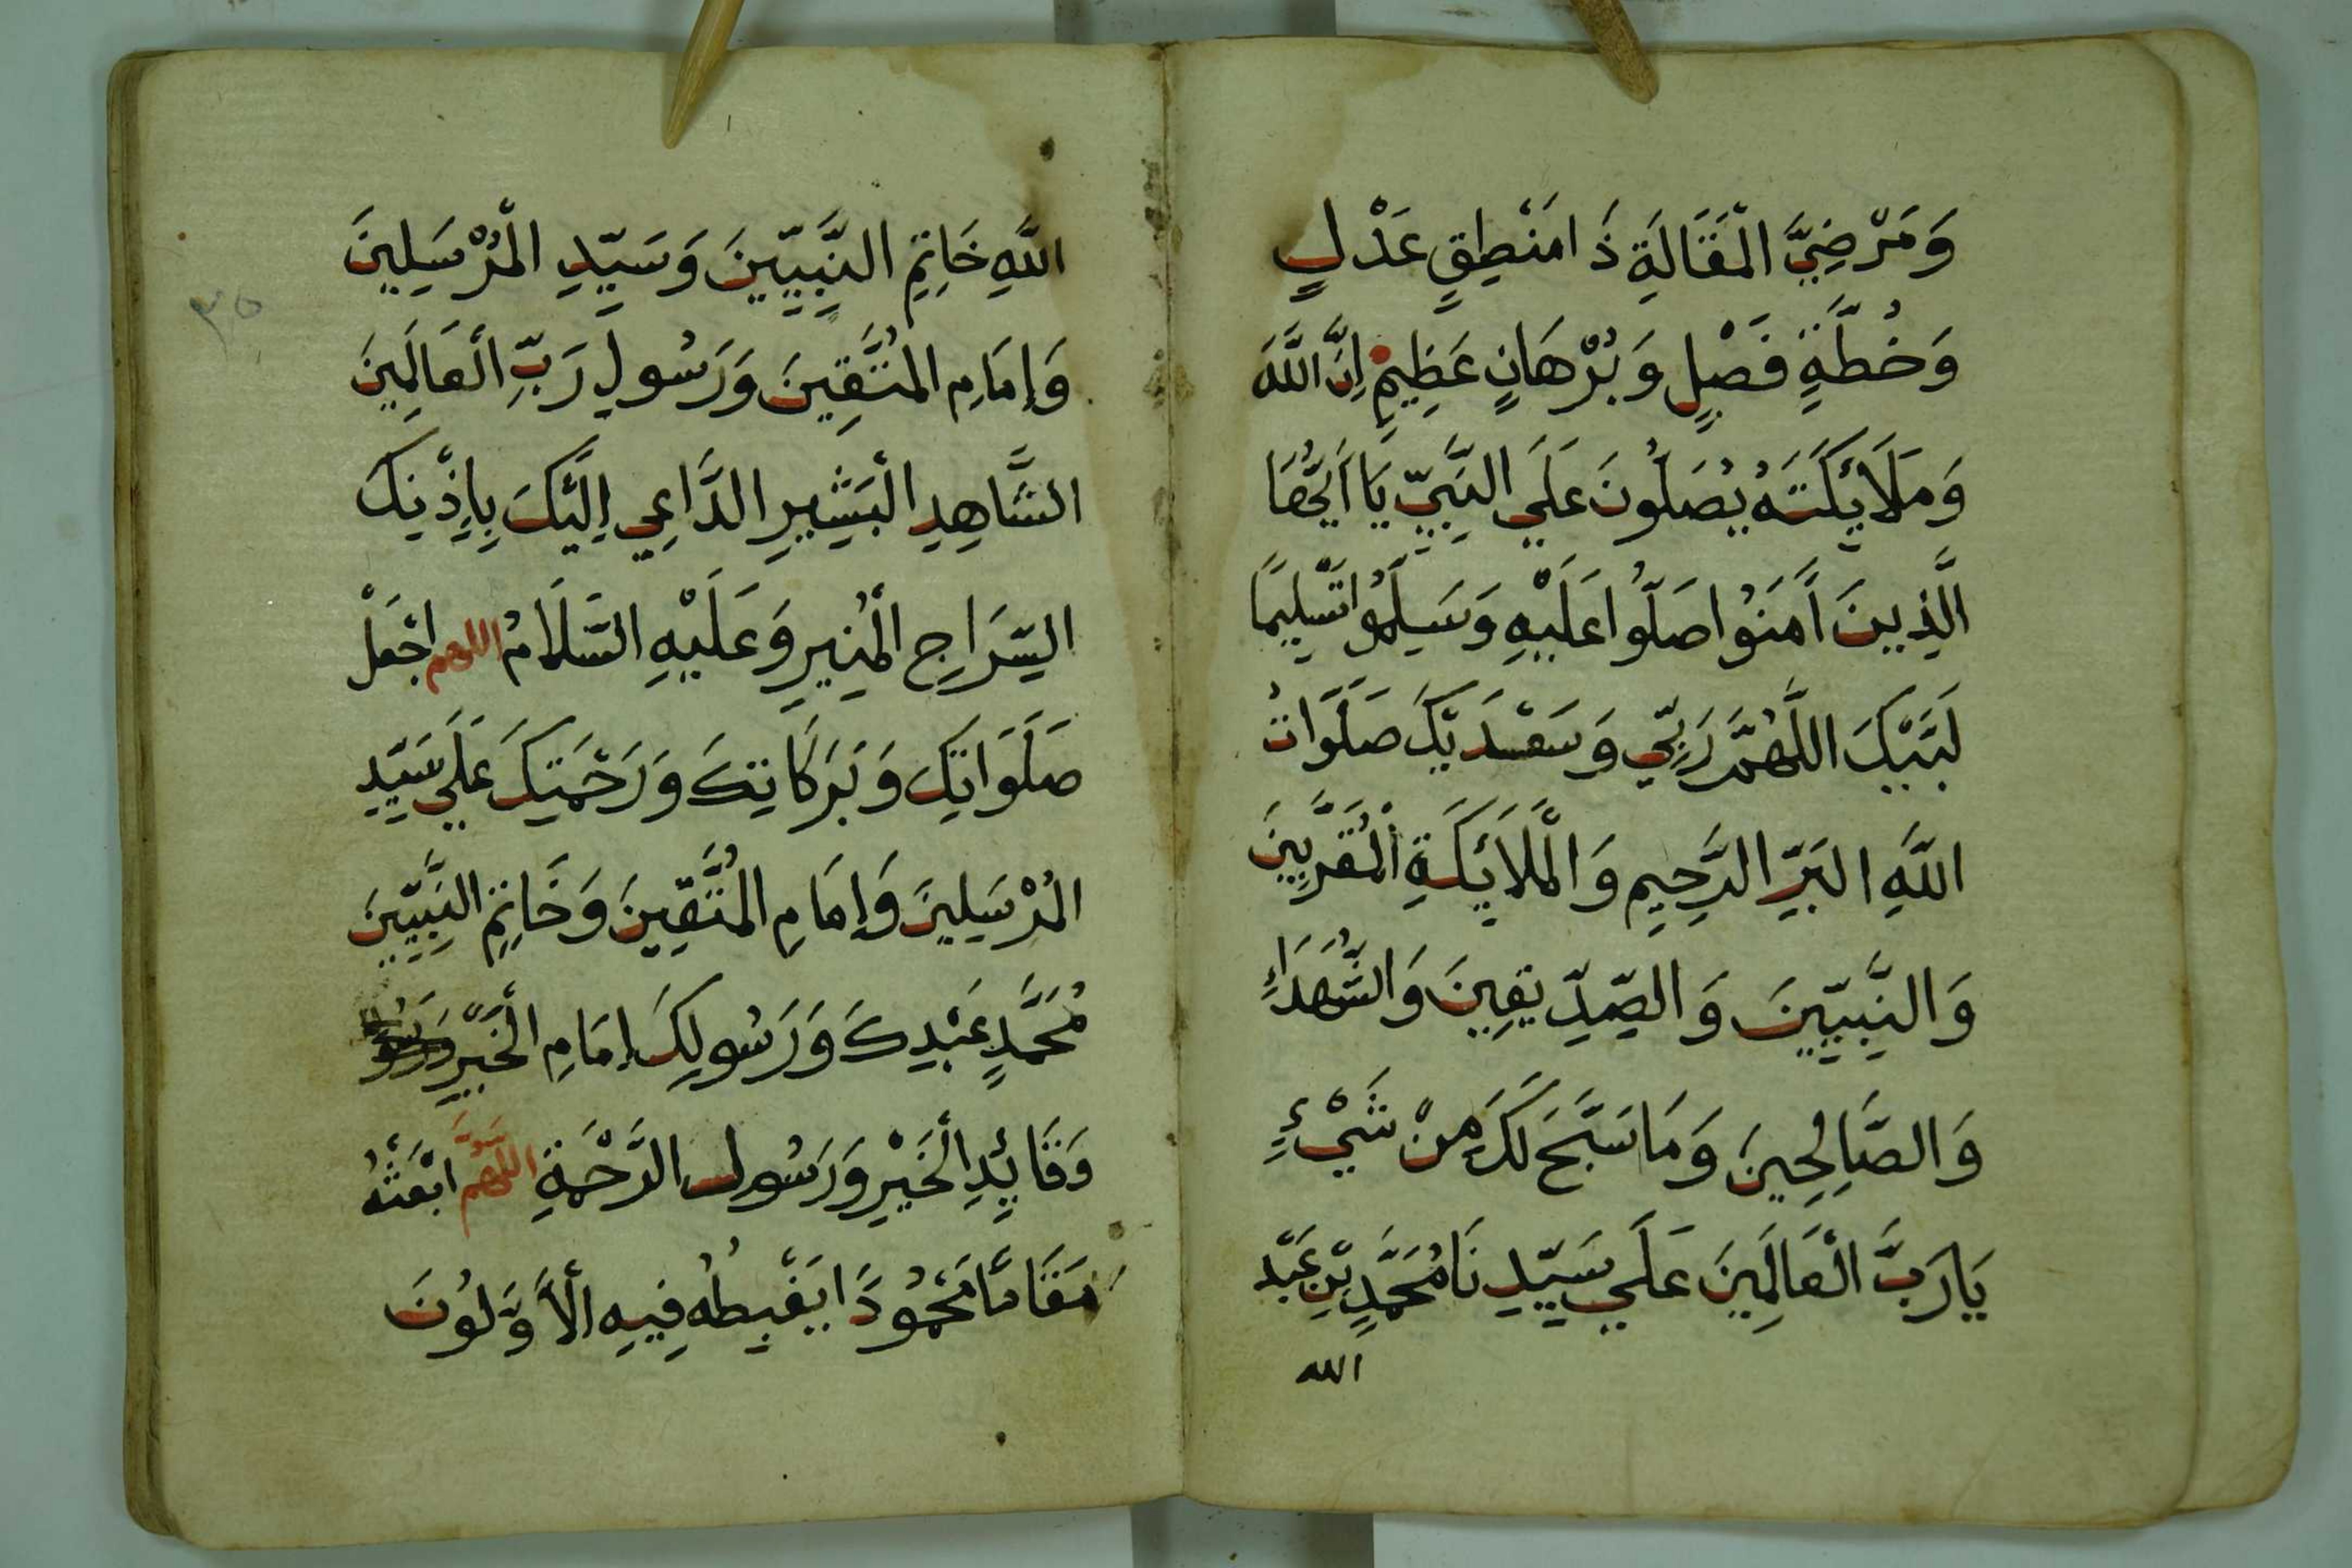 وَمَرْضِيَّ الْمَقَالَةِ ذَا مَنْطِقٍ عَدْلٍ
وَخُطَّةٍ فَصْلٍ وَبُرْهَانٍ عَظِيمٍ إِنَّ اللَّهَ
وَمَلَائِكَتَهُ يُصَلُّونَ عَلَي النَّبِيِّ يَا أَيُّهَا
الَّذِينَ آمَنُوا صَلُّوا عَلَيْهِ وَسَلِّمُوا تَسْلِيمًا
لَبَّيْكَ اللَّهُمَّ رَبِّي وَسَعْدَيْكَ صَلَوَاتُ
اللَّهِ الْبَرِّ الرَّحِيمِ وَالْمَلَائِكَةِ الْمُقَرَّبِينَ
وَالنَّبِيِّينَ وَالصِّدِّيقِينَ وَالشُّهَدَاءِ
وَالصَّالِحِينَ وَمَا سَبَّحَ لَكَ مِنْ شَيْءٍ
يَا رَبَّ الْعَالَمِينَ عَلَي سَيِّدِنَا مُحَمَّدِ بْنِ عَبْدِ
الله
اللَّهِ خَاتِمِ النَّبِيِّينَ وَسَيِّدِ الْمُرْسَلِينَ
وَإِمَامِ الْمُتَّقِينَ وَرَسُولِ رَبِّ الْعَالَمِينَ
الشَّاهِدِ الْبَشِيرِ الدَّاعِي إِلَيْكَ بِإِذْنِكَ
السِّرَاجِ الْمُنِيرِ وَعَلَيْهِ السَّلَامُ اللهم اجْعَلْ
صَلَوَاتِكَ وَبَرَكَاتِكَ وَرَحْمَتِكَ عَلَي سَيِّدِ
الْمُرْسَلِينَ وَإِمَامِ الْمُتَّقِينَ وَخَاتِمِ النَّبِيِّينَ
مُحَمَّدٍ عَبْدِكَ وَرَسُولِكَ إِمَامِ الْخَيْرِ
وَقَائِدِ الْخَيْرِ وَرَسُولِ الرَّحْمَةِ اللَّهُمَّ ابْعَثْهُ
مَقَامًا مَحْمُودًا يَغْبِطُهُ فِيهِ الْأَوَّلُونَ